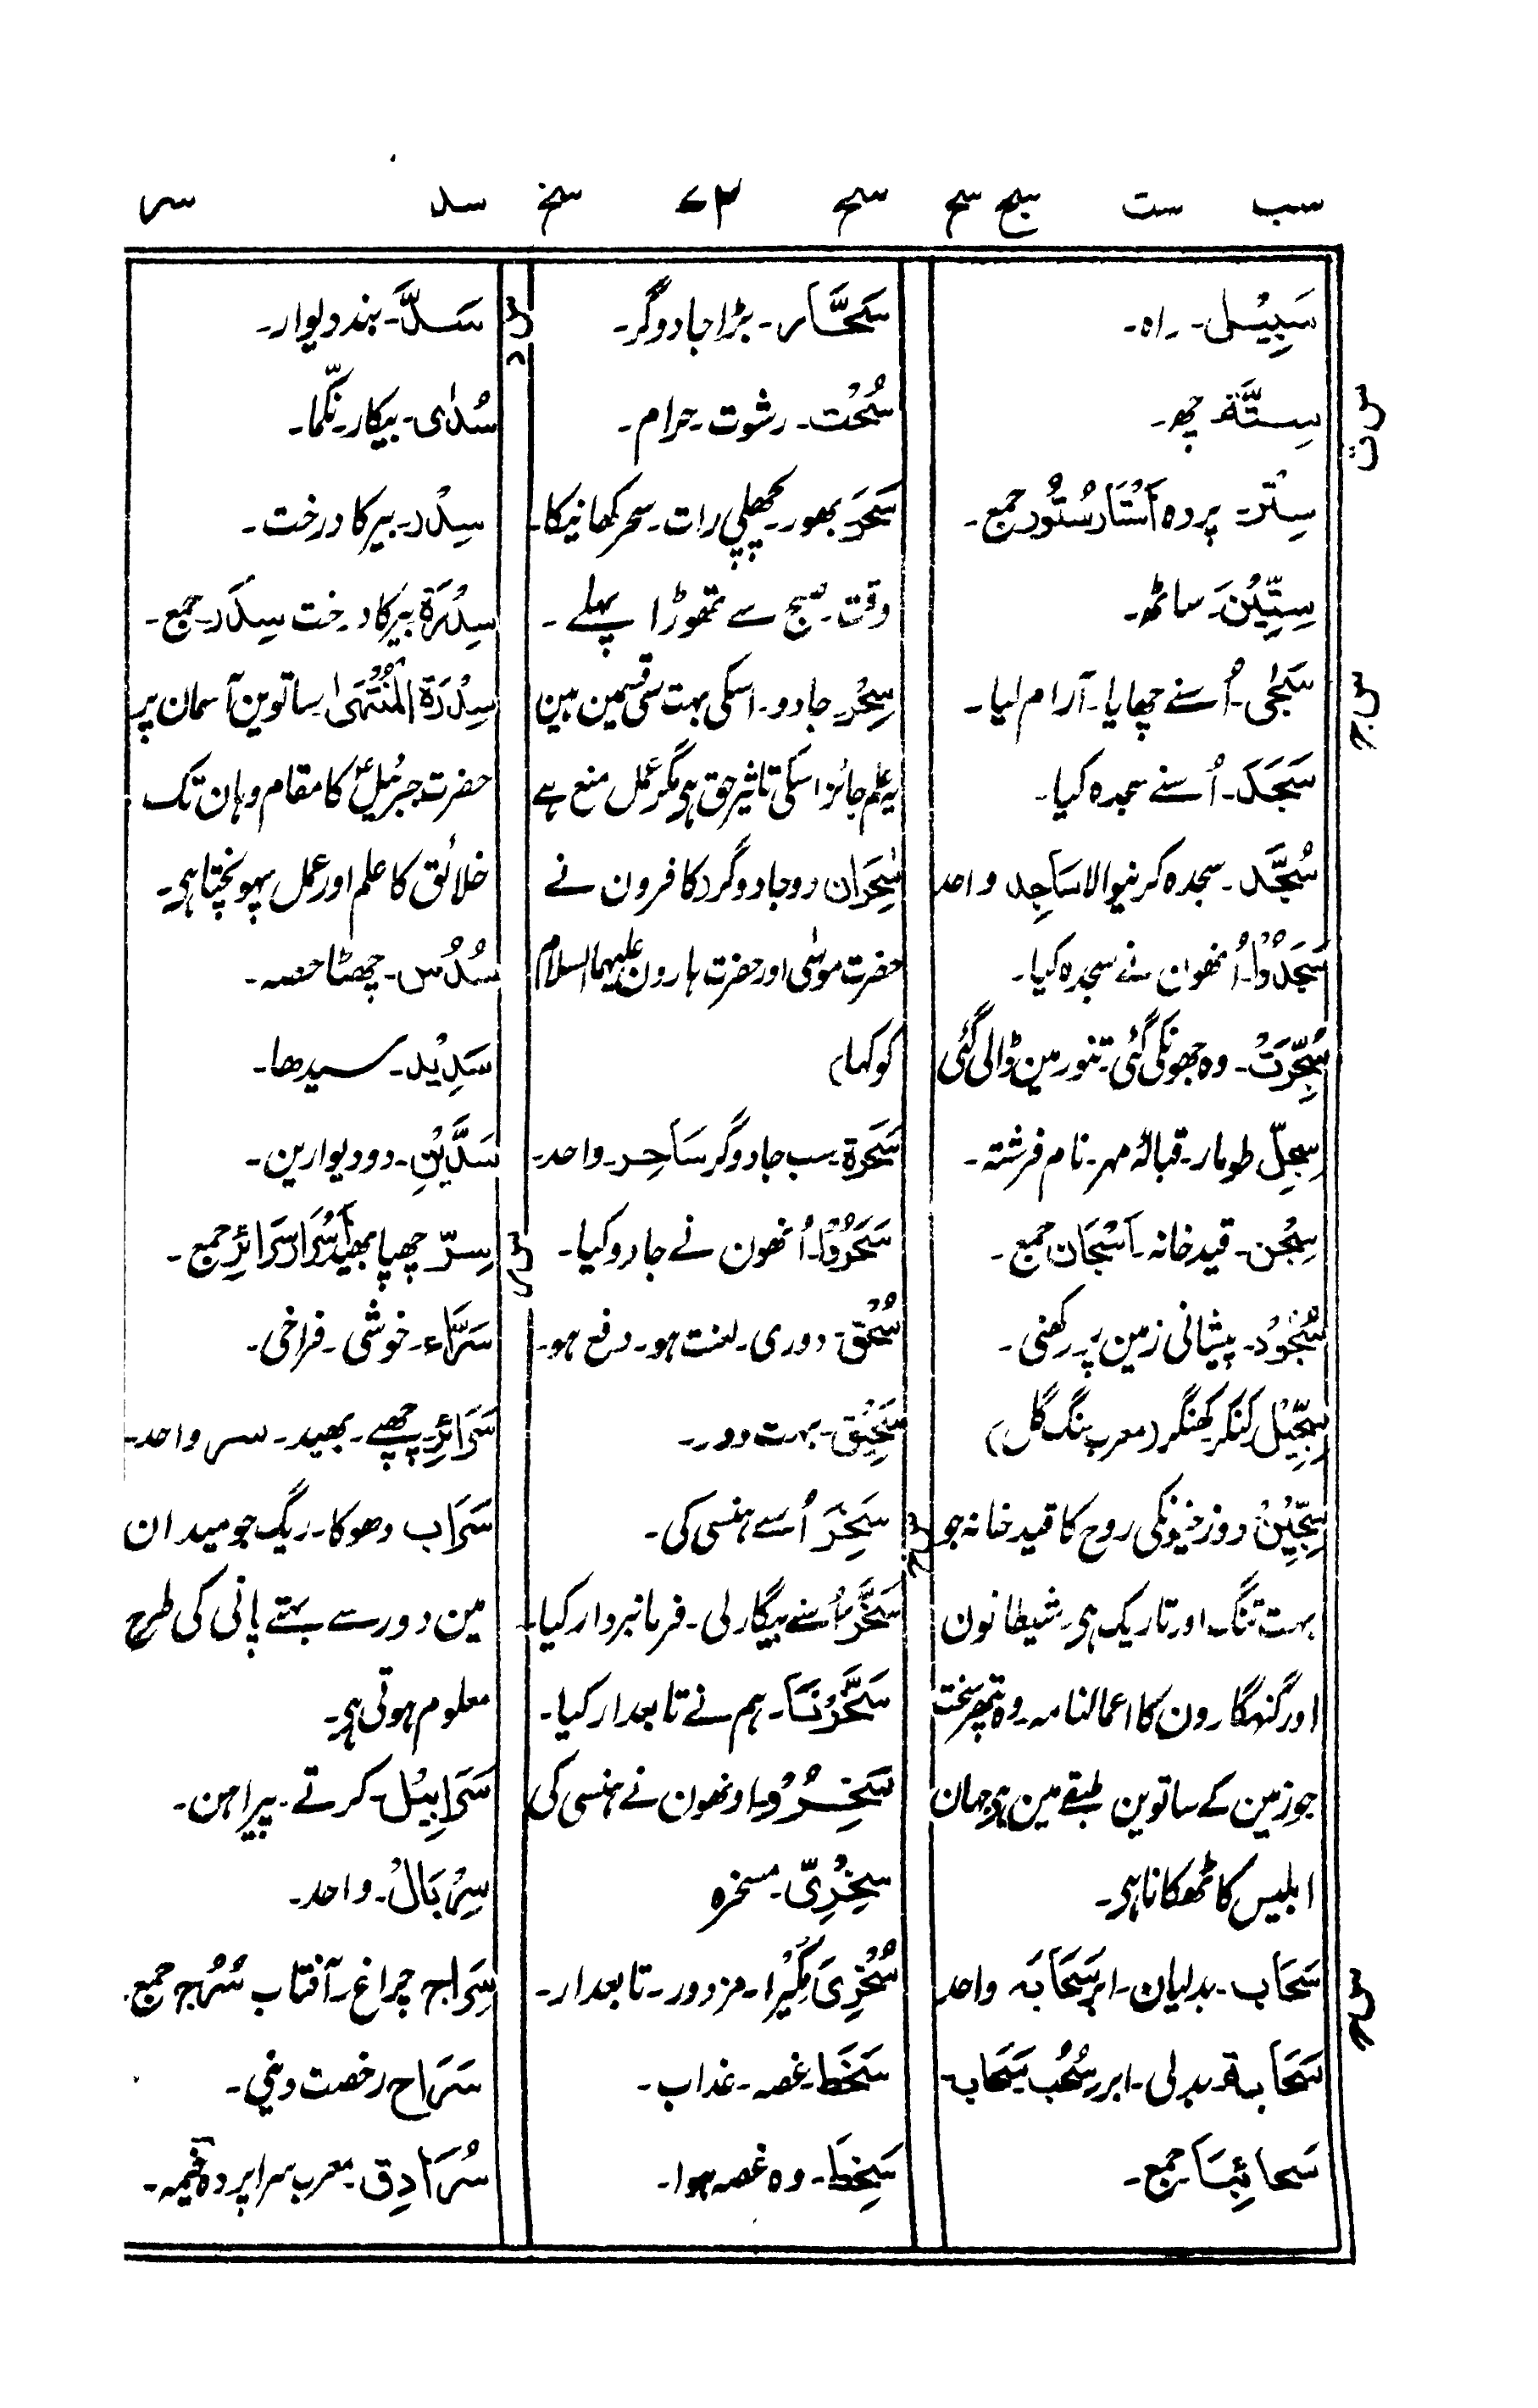 سب ست سج سح سح ۷۴ سخ سد سر
سَبِیْل۔ راہ۔
س ت
سِتَّة۔ چھ۔
سِتْر۔ پردہ اَسْتَار سُتُور جمع۔
سِتِّیْنَ۔ ساٹھ۔
س ج
سَجٰی۔ اُسنے چھایا۔ آرام لیا۔
سَجَدَ۔ اُسنے سجدہ کیا۔
سُجَّد۔ سجدہ کرنیوالا سَاجِد واحد
سَجَدُوْا۔ اُنھون نے سجدہ کیا۔
سُجِّرَتْ۔ وہ جھونکی گئی۔ تنور مین ڈالی گئی
سِجِلّ طومار۔ قبالہ مہر۔ نام فرشتہ۔
سِجْن۔ قید خانہ۔ اَسْجَان جمع۔
سُجُوْد۔ پیشانی زمین پر رکھنی۔
سِجِّیْل کنکر کھنگر (معرب سنگ گل)
سِجِّیْنٌ دوزخیونکی روح کا قید خانہ جو
بہت تنگ اور تاریک ہی۔ شیطانون
اور گنہگارون کا اعمالنامہ۔ وہ پتھر سخت
جو زمین کے ساتوین طبقے مین ہی جہان
ابلیس کا ٹھکانا ہی۔
س ح
سَحَاب۔ بدلیان۔ ابر سَحَابَہ واحد
سَحَابة۔ بدلی۔ ابر سُحُب سَحَاب۔
سَحائِبَا جمع۔
سَحَّار۔ بڑا جادوگر۔
سُحْت۔ رشوت۔ حرام۔
سَحَر بھور۔ پچھلی رات۔ سحر کھانیکا۔
وقت۔ صبح سے تھوڑا پہلے۔
سِحْر۔ جادو۔ اسکی بہت سی قسمین ہین
یہ علم جائز اسکی تاثیر حق ہی مگر عمل منع ہے
سٰحِرَان دو جادوگر (کافرون نے
حضرت موسٰی اور حضرت ہارون علیہما السلام
کو کہا)
سَحَرَة۔ سب جادوگر سَاحِر۔ واحد۔
سَحَرُوْا۔ اُنھون نے جادو کیا۔
سُحْق۔ دوری۔ لعنت ہو۔ دفع ہو۔
سَحِیْق۔ بہت دور۔
س خ
سَخِرَ اُسے ہنسی کی۔
سَخَّرَ اُسنے بیگار لی۔ فرمانبردار کیا۔
سَخَّرْنَا۔ ہم نے تابعدار کیا۔
سَخِرُوْا۔ اونھون نے ہنسی کی
سِخْرِیّ۔ مسخرہ
سُخْرِیَ مگیْرا۔ مزدور۔ تابعدار۔
سَخَط۔ غصہ۔ غداب۔
سَخِطَ۔ وہ غصہ ہوا۔
س د
سَدّ۔ بند دیوار۔
سُدٰی۔ بیکار۔ نکّما۔
سِدْر۔ بیر کا درخت۔
سِدْرَة بیر کا درخت سِدَر۔ جمع۔
سِدْرَة الْمُنْتَهٰی ساتوین آسمان پر
حضرت جبرئیلؑ کا مقام وہان تک
خلائق کا علم اور عمل پہونچتا ہی۔
سُدُس۔ چھٹا حصہ۔
سَدِیْد۔ سیدھا۔
سَدَّیْنِ۔ دو دیوارین۔
س ر
سِرّ چھپا بھید اَسْرَار سَرَائِر جمع۔
سَرَّاء۔ خوشی۔ فراخی۔
سَرَائِر۔ چھپے۔ بھید۔ سر واحد۔
سَرَاب دھوکا۔ ریگ جو میدان
مین دور سے بہتے پانی کی طرح
معلوم ہوتی ہی۔
سَرَابِیْل۔ کرتے۔ پیراہن۔
سِرْبَالٌ۔ واحد۔
سِرَاج چراغ۔ آفتاب سُرُج جمع۔
سَرَاح رخصت دینی۔
سُرَادِق۔ معرب سراپردہ خیمہ۔